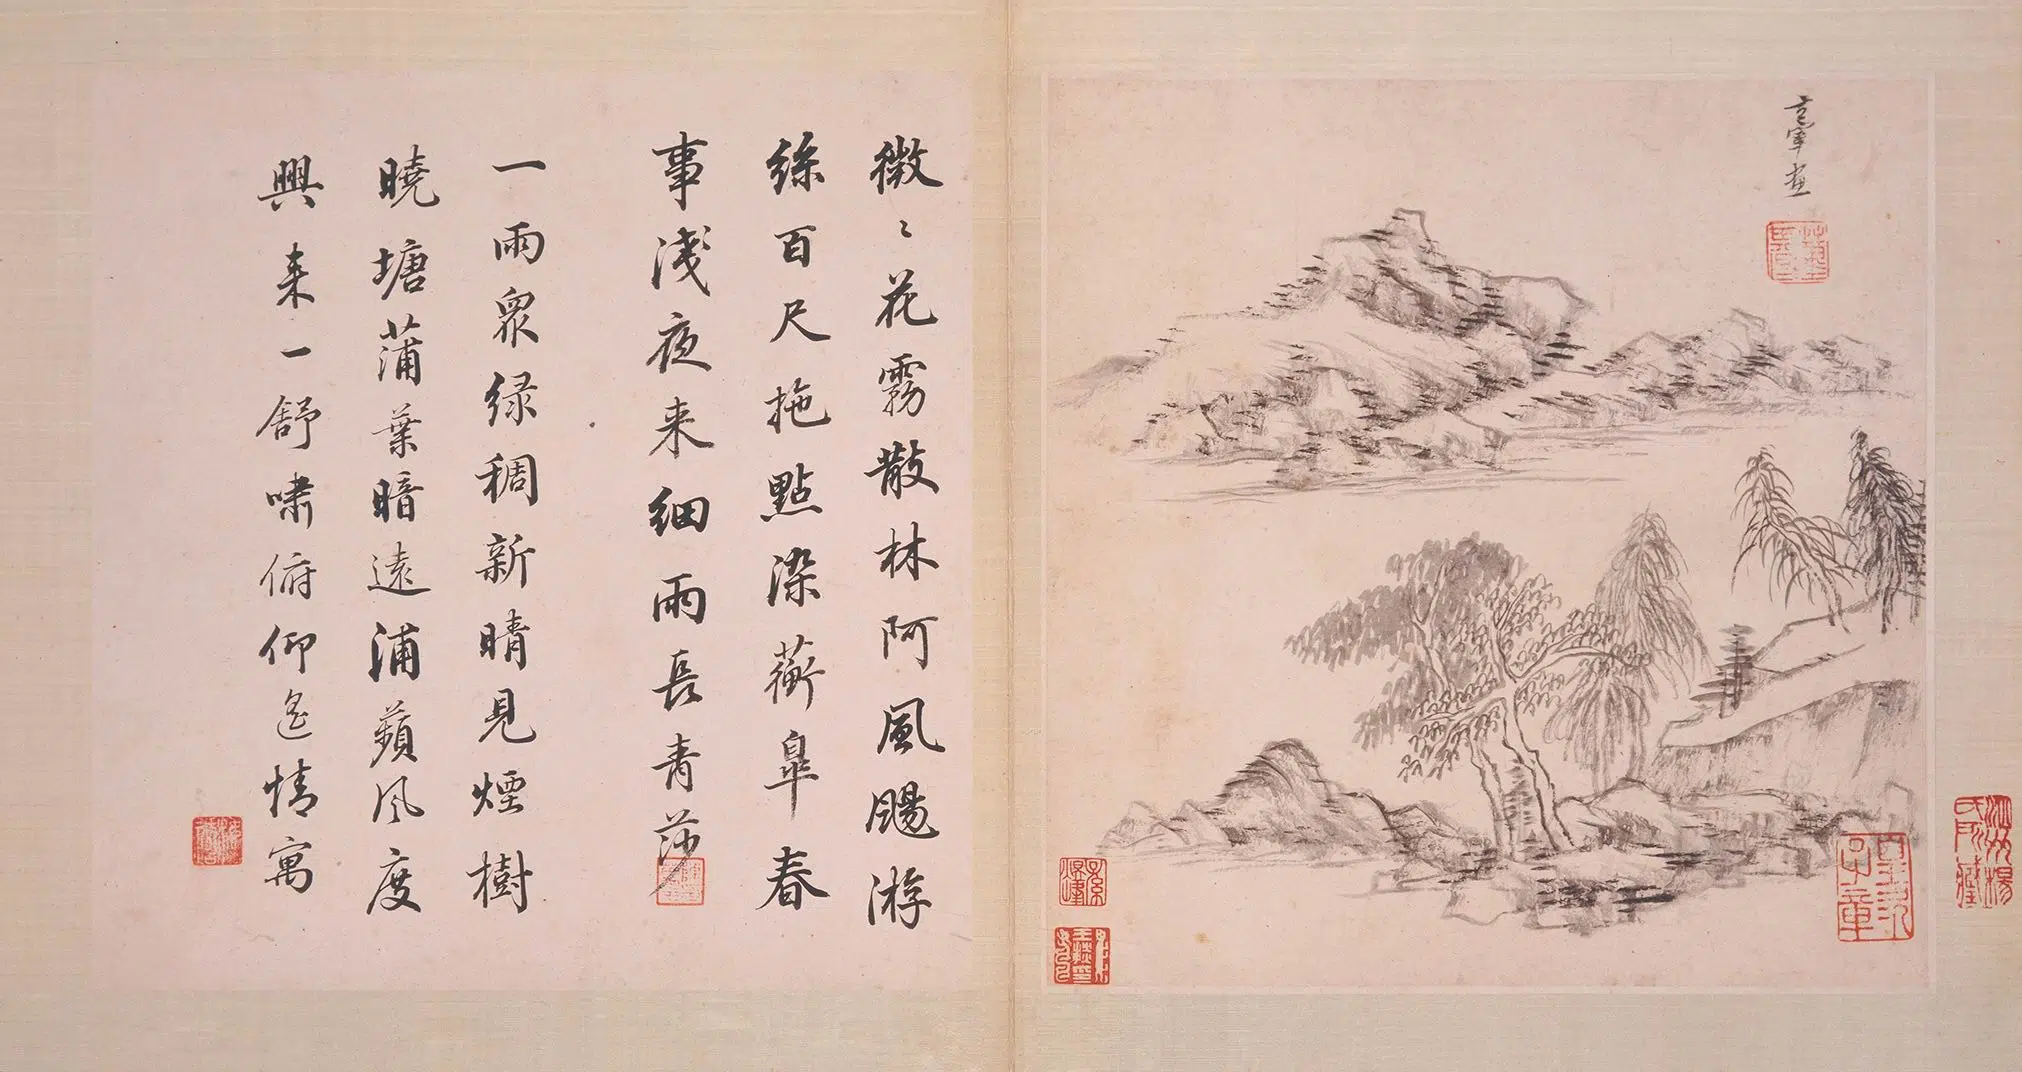 玄宰畫
微〻花霧散林阿風颺游
絲百尺拖點染蘅皋春
事淺夜来細雨長青莎
一雨衆緑稠新晴見煙樹
曉塘蒲葉暗遠浦蘋風度
興来一舒嘯俯仰遙情寓